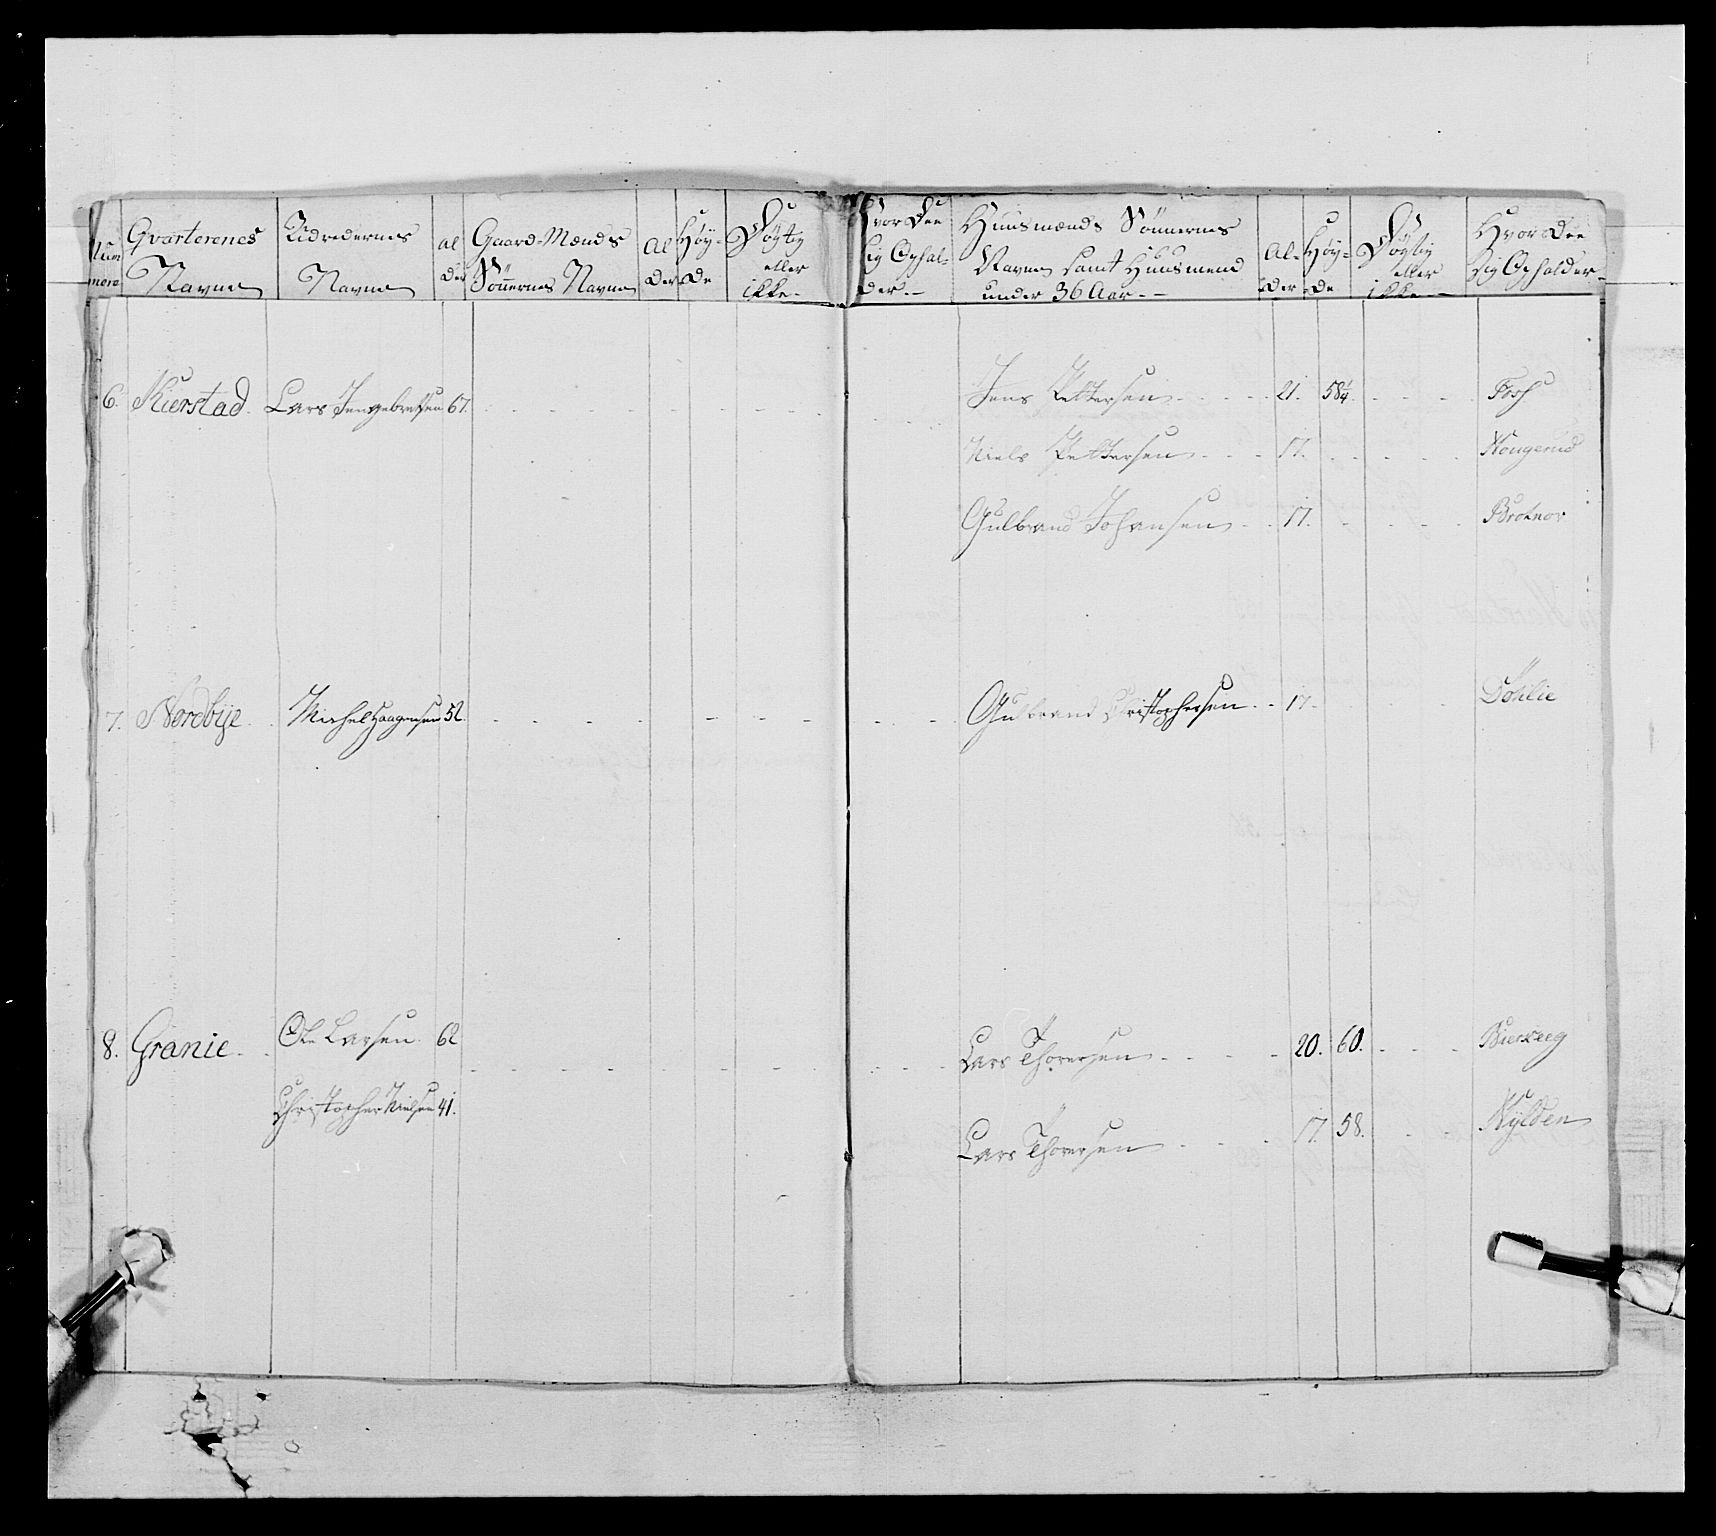 Num
mero
Gvarterenes
Navne
Udredernes
Navne
al
der
Gaard-Mænds
Sönnernes Navne
Al
der
Höy-
de
Dögtig
eller
ikke.
Hvor Dee
Sig Ophal-
der.
Huusmænds Sönnernes
Navne samt Huusmend
under 36 Aar.
Al-
der
Höy-
de
Dögtig
eller
ikke
Hvor Dee
Sig Opholder
6. Kierstad. Lars Jengebretsen 67. Jens Pettersen 21. 58¼ Fosh
Niels Pettersen 17. Hougerud
Gulbrand Johansen 17. Brotnov
7. Nordbye Michel Haagensen 52. Gulbrand Christophersen 17. Döhlie
8. Granie Ole Larsen 62 Lars Thoresen 20. 60.
Christopher Nielsen 41. Lars Thoresen 17. 58. Kylden